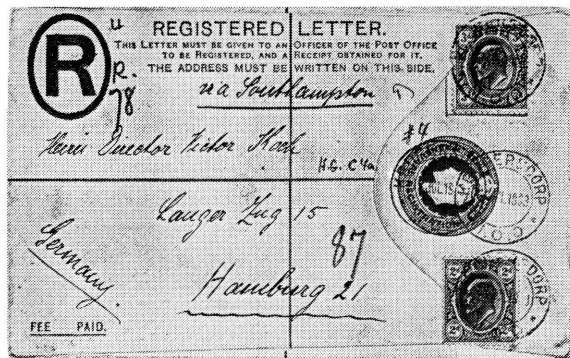 REGISTERED LETTER.
THIS LETTER MUST BE GIVEN TO AN OFFICER OF THE POST OFFICE
TO BE REGISTERED, AND A RECEIPT OBTAINED FOR IT.
THE ADDRESS MUST BE WRITTEN ON THIS SIDE.
R
R.
78
via Southampton
#4
Herrn Director Victor Koch
H.G. C 4a
Langer Zug 15
87
Germany
Hamburg 21
FEE PAID.